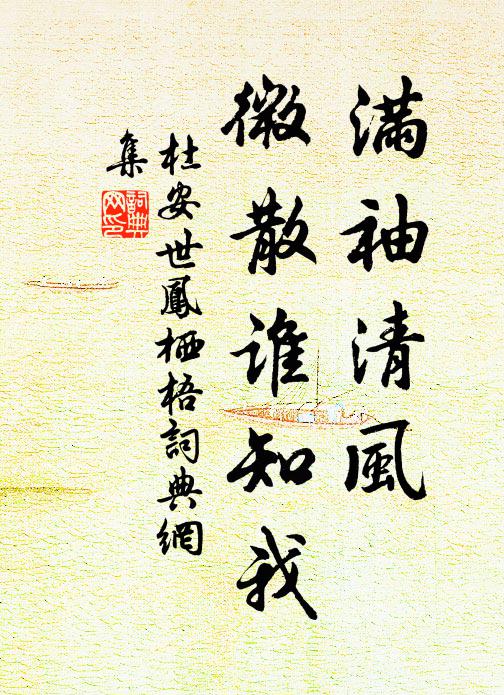 滿袖清風
微散誰知我
杜安世鳳栖梧詞典網
集
詞典網印